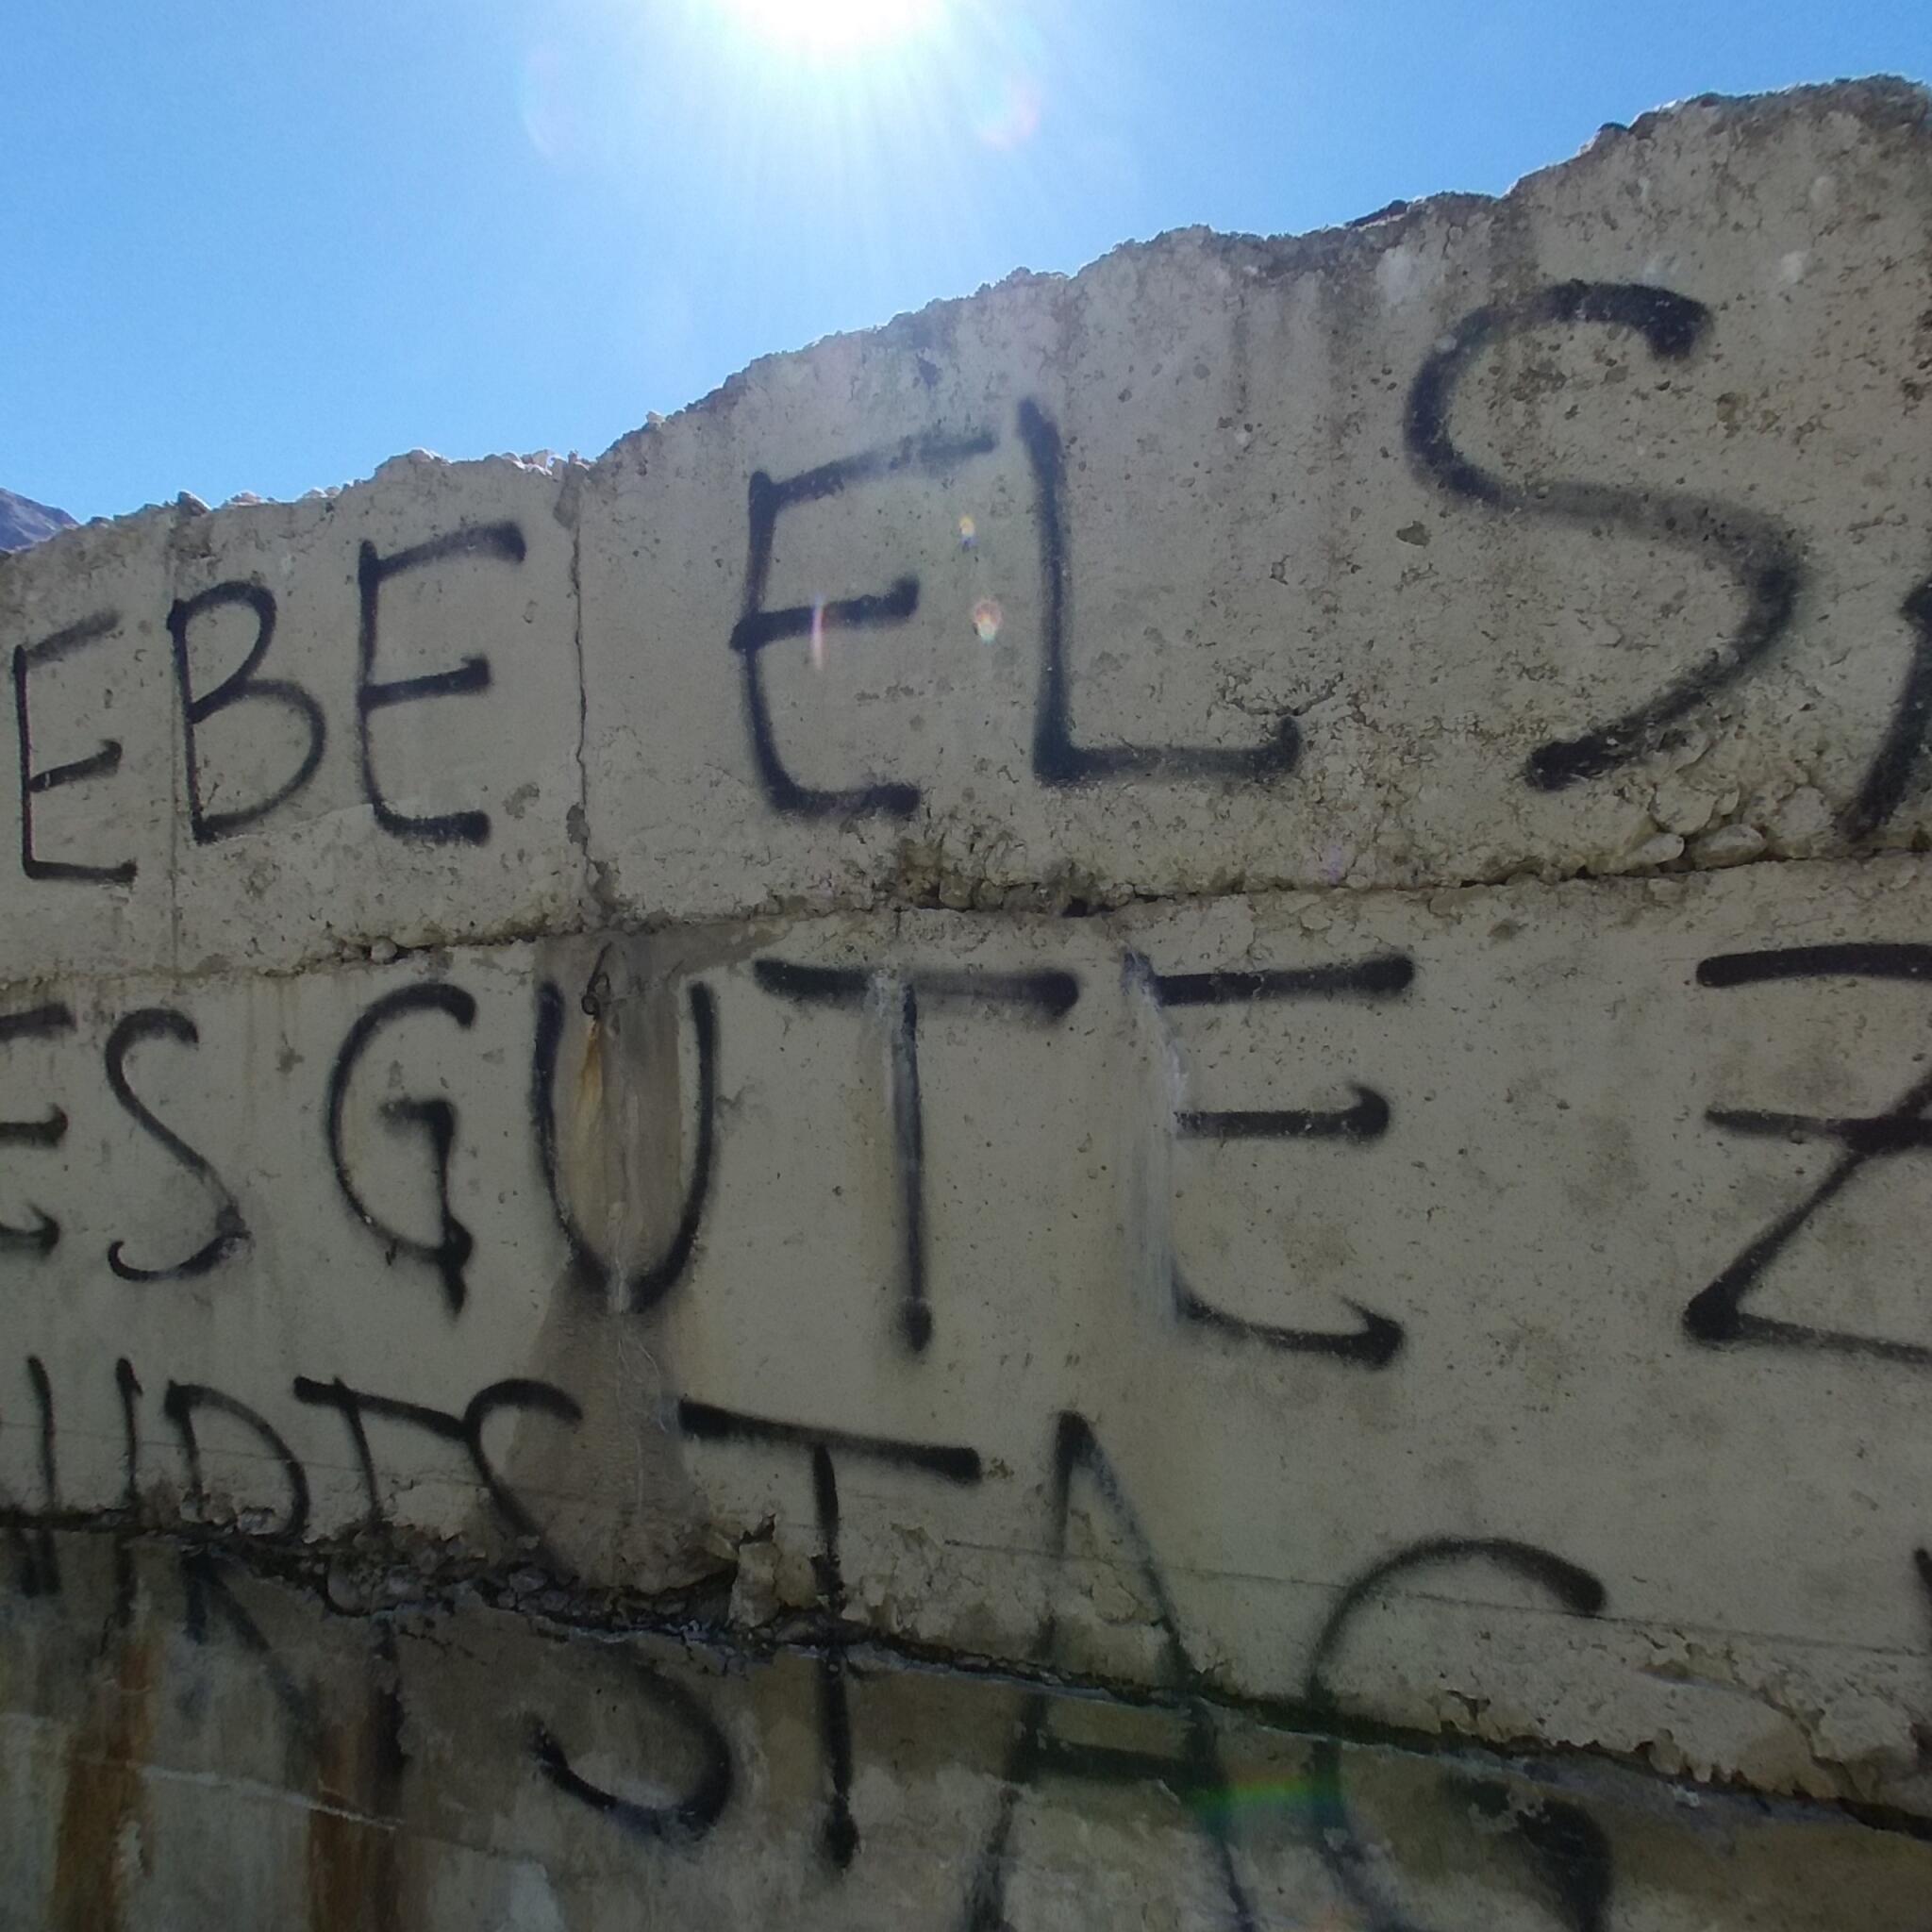 EBE ELS
ES GUTE Z
URTSTAG